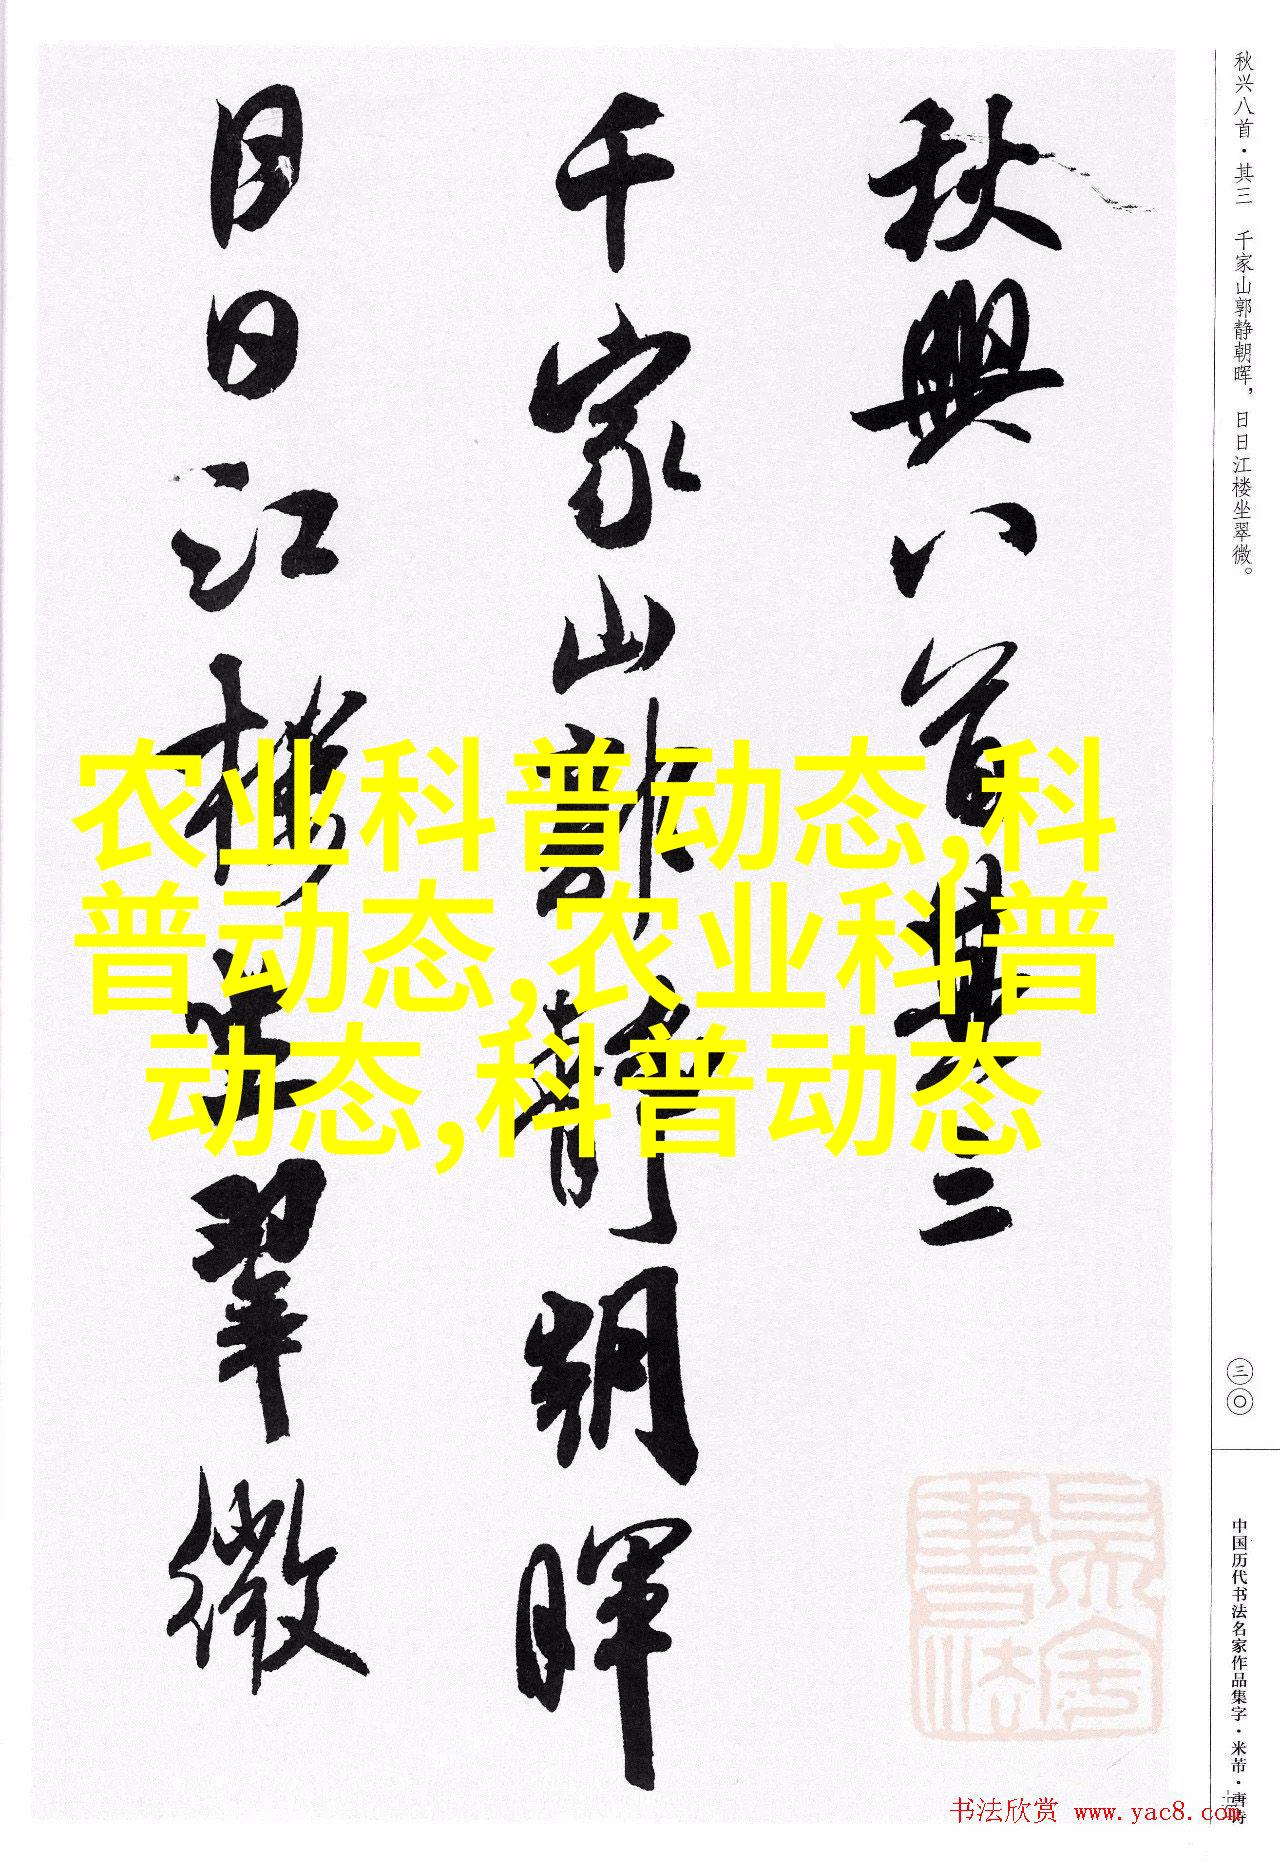 秋兴八首·其三 千家山郭静朝晖，日日江楼坐翠微。
三〇
中国历代书法名家作品集字·米芾·唐诗
秋興八首其三
千家山郭静朝暉
日日江樓坐翠微
农业科普动态,科
普动态,农业科普
动态,科普动态
书法欣赏 www.yac8.com